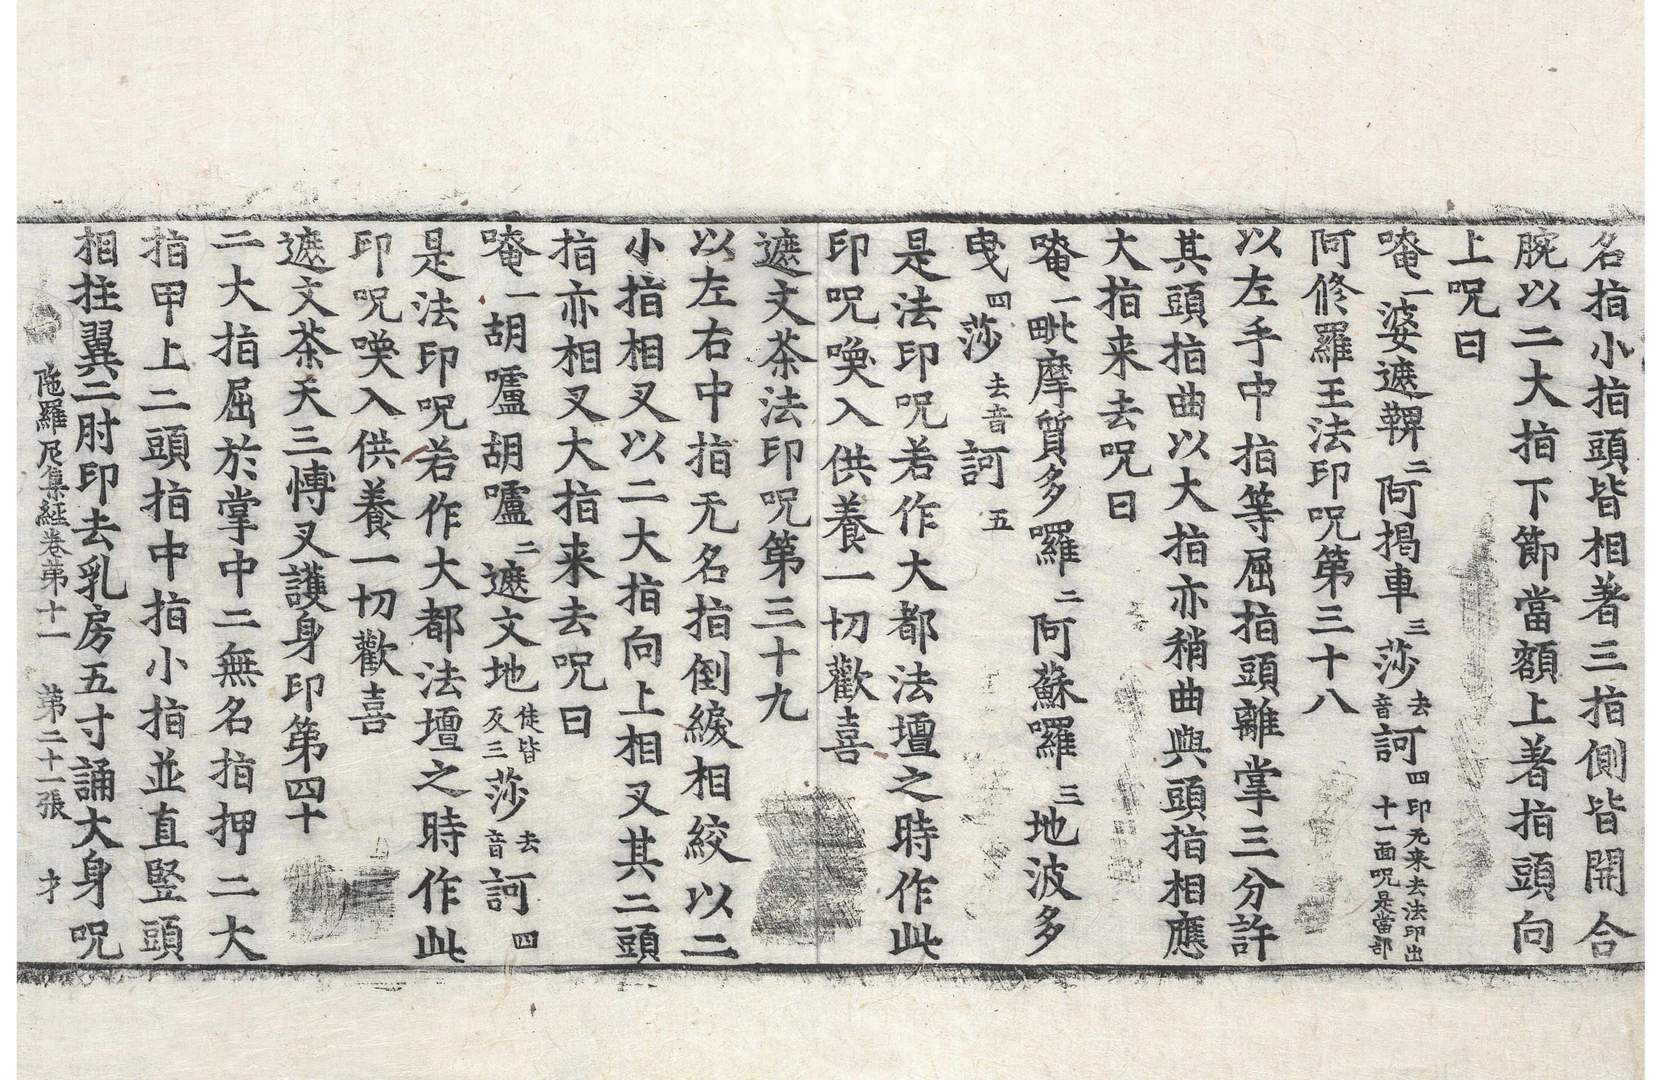 名指小指頭皆相著三指側皆開合
腕以二大指下節當額上著指頭向
上呪曰
唵一婆遮鞞二阿揭車三莎去音訶四印无来去法印出十一面呪是當部
阿修羅王法印呪第三十八
以左手中指等屈指頭離掌三分許
其頭指曲以大指亦稍曲與頭指相應
大指来去呪曰
唵一毗摩質多囉二阿蘇囉三地波多
曳四莎去音訶五
是法印呪若作大都法壇之時作此
印呪喚入供養一切歡喜
遮文茶法印呪第三十九
以左右中指无名指倒綟相絞以二
小指相叉以二大指向上相叉其二頭
指亦相叉大指来去呪曰
唵一胡嚧胡嚧二遮文地徒皆反三莎去音訶四
是法印呪若作大都法壇之時作此
印呪喚入供養一切歡喜
遮文茶天三愽叉護身印第四十
二大指屈於掌中二無名指押二大
指甲上二頭指中指小指並直竪頭
相拄翼二肘印去乳房五寸誦大身呪
陁羅尼集経卷第十一 第二十一張 才